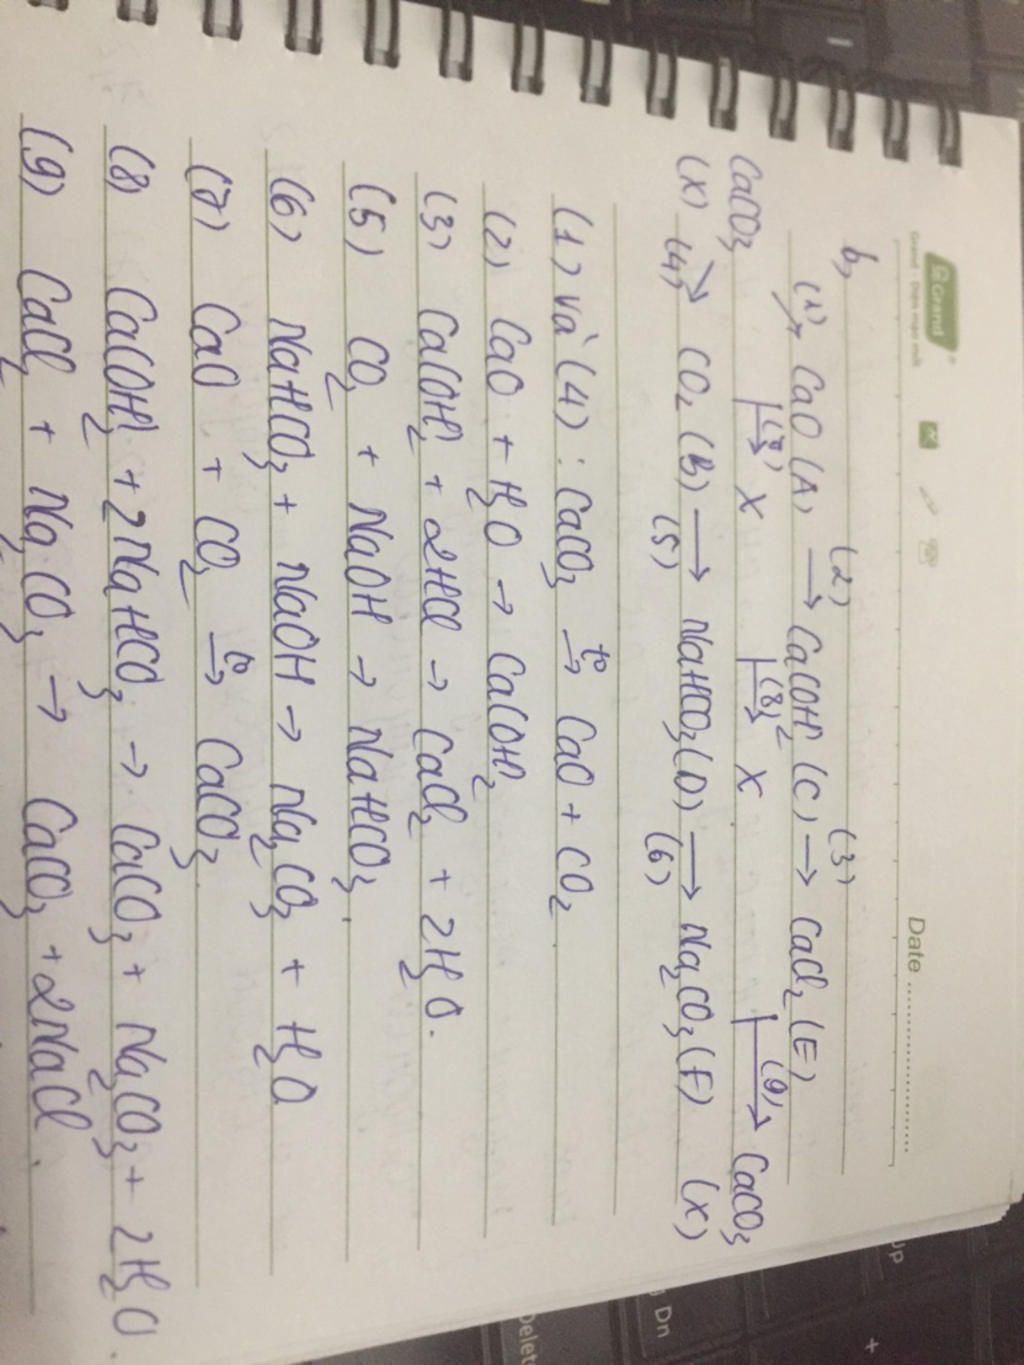 Grand
Date
b,
(1)→ CaO (A) (2)→ Ca(OH)2 (C) (3)→ CaCl2 (E)
CaCO3 (7)→ X (8)→ X (9)→ CaCO3
(X) (4)→ CO2 (B) →(5) NaHCO3 (D) →(6) Na2CO3 (F) (X)
(1) và (4) : CaCO3 t°→ CaO + CO2
(2) CaO + H2O → Ca(OH)2
(3) Ca(OH)2 + 2HCl → CaCl2 + 2H2O.
(5) CO2 + NaOH → NaHCO3.
(6) NaHCO3 + NaOH → Na2CO3 + H2O
(7) CaO + CO2 t°→ CaCO3
(8) Ca(OH)2 + 2NaHCO3 → CaCO3 + Na2CO3 + 2H2O.
(9) CaCl2 + Na2CO3 → CaCO3 + 2NaCl.
Up
Dn
Delete
+